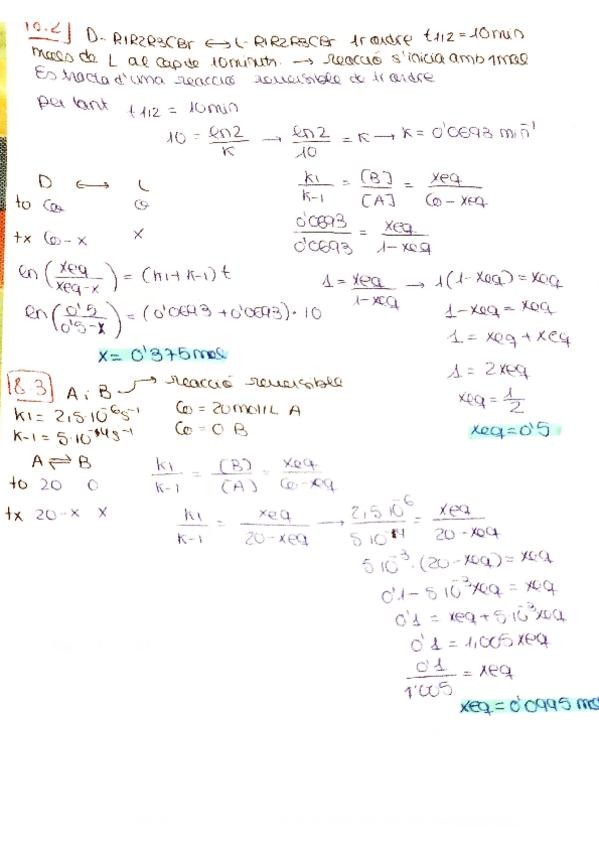 10.2] D-R1R2R3CBr ⟷ L-R1R2R3CBr 1r ordre t1/2 = 10min
moles de L al cap de 10 minuts. → reacció s'inicia amb 1 mol
Es tracta d'una reacció reversible de 1r ordre
per tant t1/2 = 10min
10 = ln2/K → ln2/10 = K → K = 0'0693 min⁻¹
D ⟷ L
to Co 0
tx Co-x x
K1/K-1 = [B]/[A] = xeq/(Co-xeq)
0'0693/0'0693 = xeq/(1-xeq)
ln(xeq/(xeq-x)) = (K1+K-1)t
ln(0'5/(0'5-x)) = (0'0693+0'0693)·10
x = 0'375mol
1 = xeq/(1-xeq) → 1(1-xeq) = xeq
1-xeq = xeq
1 = xeq + xeq
1 = 2xeq
xeq = 1/2
xeq = 0'5
18.3] A i B → reacció reversible
K1 = 2,5·10⁻⁶s⁻¹ Co = 20mol/L A
K-1 = 5·10⁻⁴s⁻¹ Co = 0 B
A ⇌ B
to 20 0
tx 20-x x
K1/K-1 = [B]/[A] = xeq/(Co-xeq)
K1/K-1 = xeq/(20-xeq) → 2,5 10⁻⁶/5 10⁻⁴ = xeq/(20-xeq)
5 10⁻³·(20-xeq) = xeq
0'1 - 5 10⁻³xeq = xeq
0'1 = xeq + 5 10⁻³xeq
0'1 = 1,005xeq
0'1/1'005 = xeq
xeq = 0'0995 mol